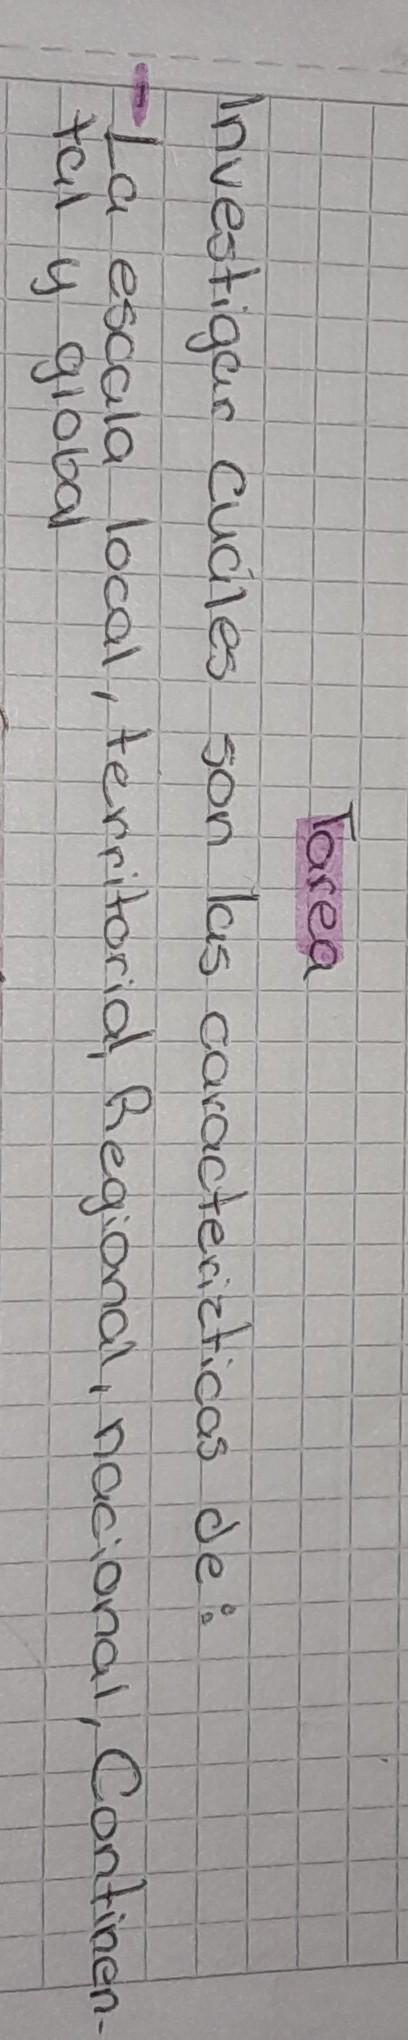 Tarea
Investigar cuáles son las caracterizticas de:
- La escala local, territorial, Regional, nacional, Continen-
tal y global